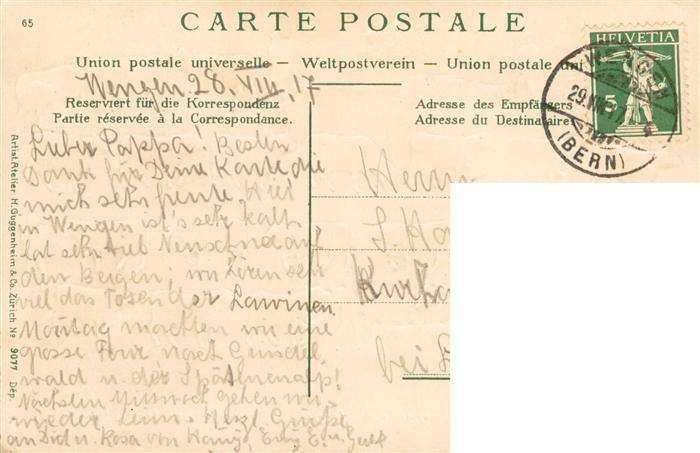 65
CARTE POSTALE
Union postale universelle — Weltpostverein — Union postale uni
Wengen 28. VIII. 17
Reserviert für die Korrespondenz
Partie réservée à la Correspondance.
Adresse des Empfängers
Adresse du Destinataire
HELVETIA
5
WENGEN
29.VIII.17
(BERN)
Lieber Pappa! Besten
Dank für Deine Karte die
mich sehr freute.
in Wengen ist's sehr kalt
hat sehr viel Neuschnee auf
den Bergen, wir hören sehr
viel das Tosen der Lawinen
Montag machten wir eine
grosse Tour nach Grindel-
wald u. der
Nächsten Mittwoch gehen wir
wieder heim. Herzl. Grüsse
an Dich u. Rosa von
Herrn
S.
Kurha
bei
Artist. Atelier H. Guggenheim & Co. Zürich No 9077 Dép.